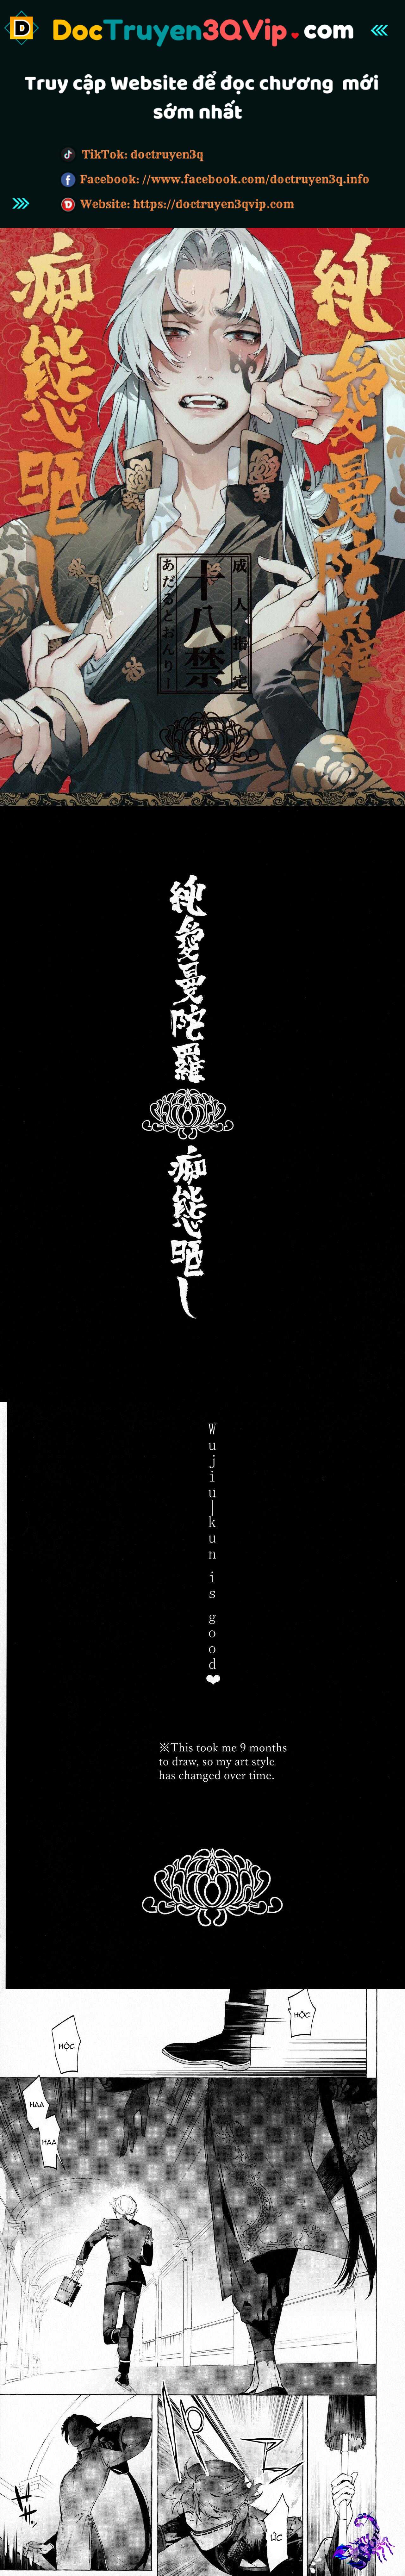 DocTruyen3QVip.com
Truy cập Website để đọc chương mới
sớm nhất
TikTok: doctruyen3q
Facebook: //www.facebook.com/doctruyen3q.info
Website: https://doctruyen3qvip.com
純愛曼陀羅
痴態晒し
成人指定
十八禁
あだるとおんりー
純愛曼陀羅
痴態晒し
Wujiu-kun is good❤
※This took me 9 months
to draw, so my art style
has changed over time.
HỘC
HỘC
HAA
HAA
ỨC